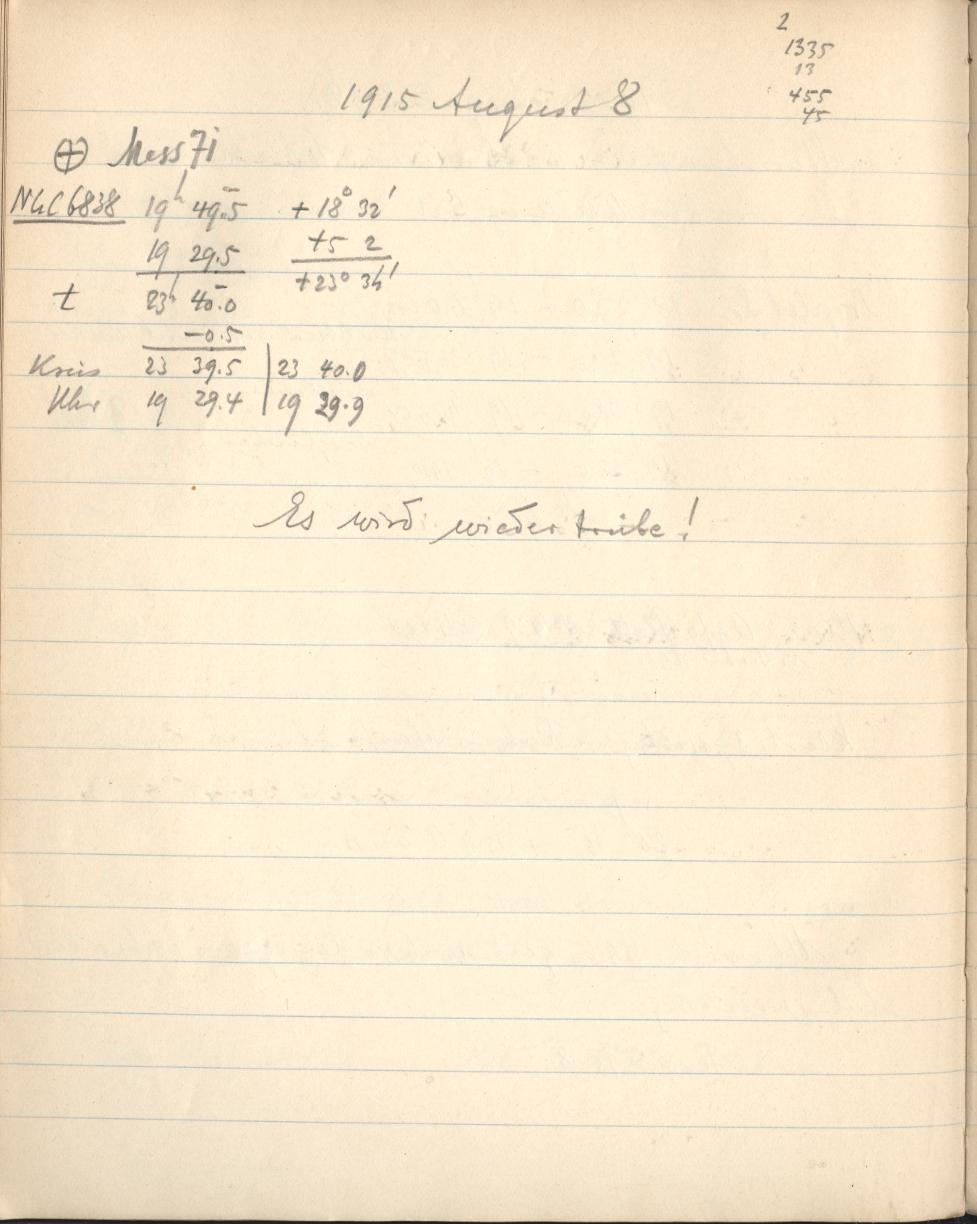 2
1335
13
455
45
1915 August 8
⊕ Mess 71
NGC 6838 19h 49.5 +18° 32'
19 29.5 +5 2
+23° 34'
t 23h 40.0
-0.5
Kreis 23 39.5 | 23 40.0
Uhr 19 29.4 | 19 29.9
Es wird wieder trübe!